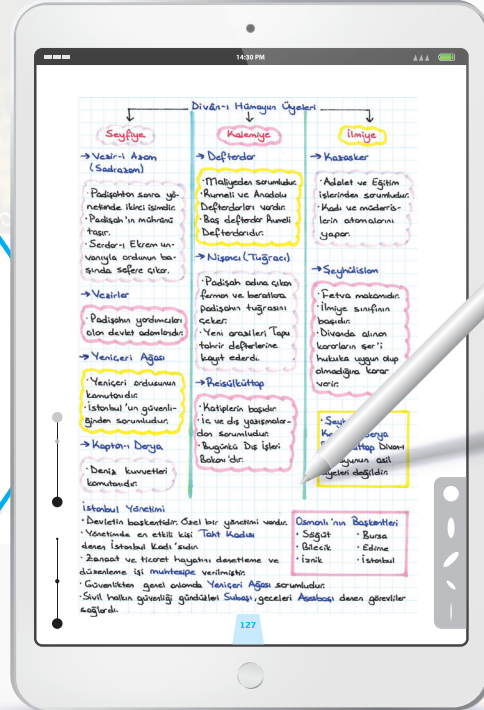 14:30 PM
Divân-ı Hümayun Üyeleri
Seyfiye
→ Vezir-i Azam
(Sadrazam)
· Padişahtan sonra yö-
netimde ikinci isimdir.
· Padişah'ın mührünü
taşır.
· Serdar-ı Ekrem un-
vanıyla ordunun ba-
şında sefere çıkar.
→ Vezirler
· Padişahın yardımcıları
olan devlet adamlarıdır.
→ Yeniçeri Ağası
· Yeniçeri ordusunun
komutanıdır.
· İstanbul'un güvenli-
ğinden sorumludur.
→ Kaptan-ı Derya
· Deniz kuvvetleri
komutanıdır.
Kalemiye
→ Defterdar
· Maliyeden sorumludur.
· Rumeli ve Anadolu
Defterdarları vardır.
· Baş defterdar Rumeli
Defterdarıdır.
→ Nişancı (Tuğracı)
· Padişah adına çıkan
ferman ve beratlara
padişahın tuğrasını
çeker.
· Yeni arazileri Tapu
tahrir defterlerine
kayıt ederdi.
→ Reisülküttap
· Katiplerin başıdır.
· İç ve dış yazışmalar-
dan sorumludur.
· Bugünkü Dış İşleri
Bakanı'dır.
İlmiye
→ Kazasker
· Adalet ve Eğitim
işlerinden sorumludur.
· Kadı ve müderris-
lerin atamalarını
yapar.
→ Şeyhülislam
· Fetva makamıdır.
· İlmiye sınıfının
başıdır.
· Divanda alınan
kararların şer'i
hukuka uygun olup
olmadığına karar
verir.
Derya
Divan-ı
asil
üyeleri değildir.
İstanbul Yönetimi
· Devletin başkentidir. Özel bir yönetimi vardır.
· Yönetimde en etkili kişi Taht Kadısı
denen İstanbul Kadı'sıdır.
· Zanaat ve ticaret hayatını denetleme ve
düzenleme işi muhtesipe verilmiştir.
· Güvenlikten genel anlamda Yeniçeri Ağası sorumludur.
· Sivil halkın güvenliği gündüzleri Subaşı, geceleri Asesbaşı denen görevliler
sağlardı.
Osmanlı'nın Başkentleri
· Söğüt · Bursa
· Bilecik · Edirne
· İznik · İstanbul
127